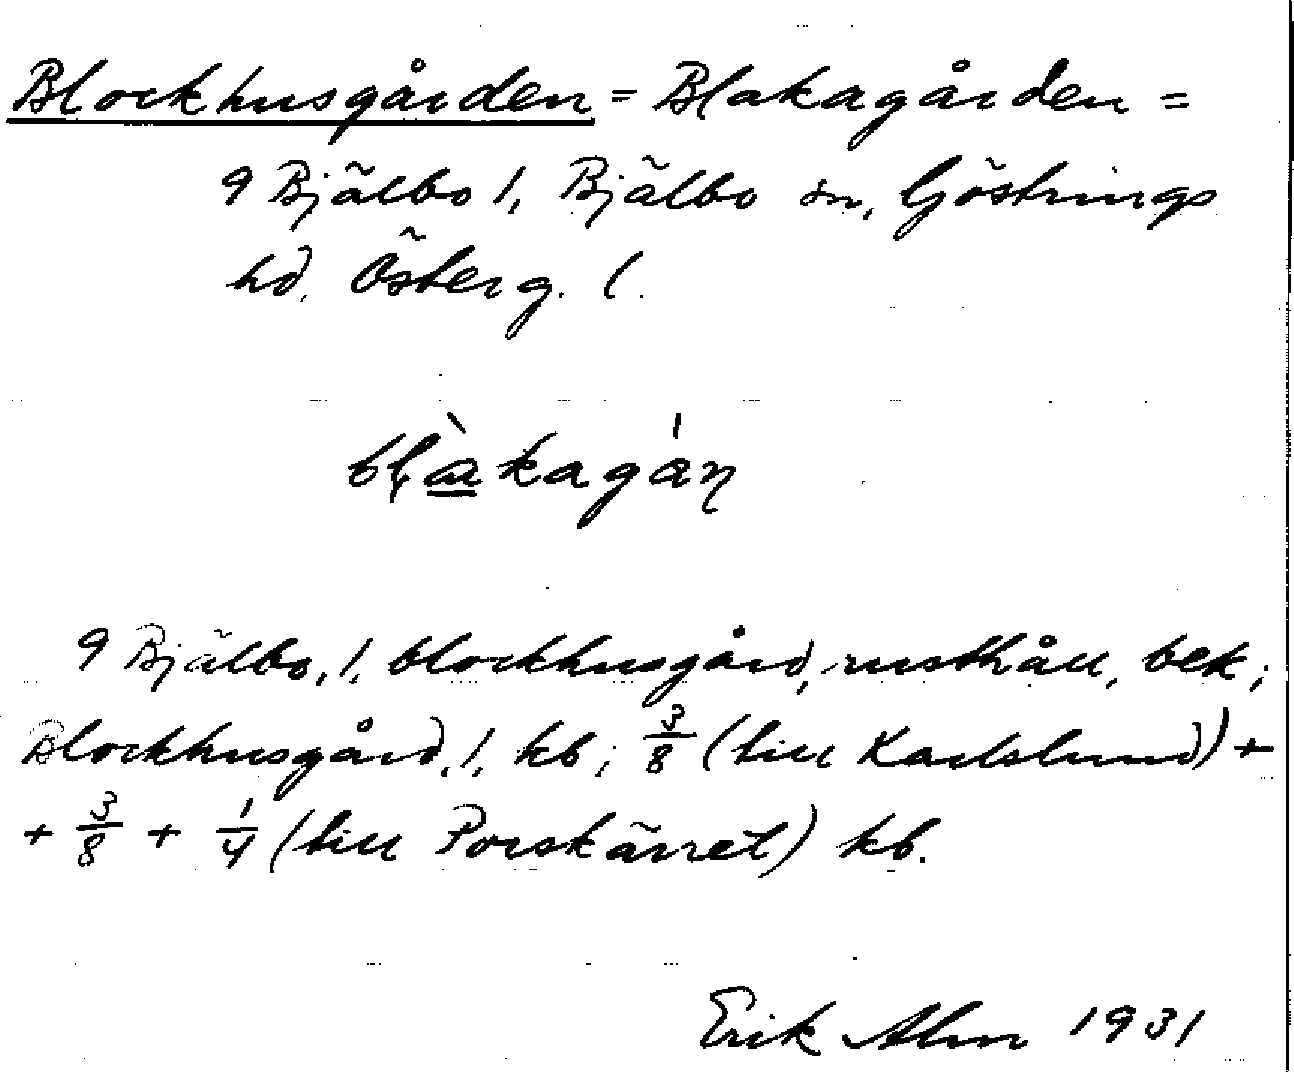 Blockhusgården = Blakagården =
9 Bjälbo 1, Bjälbo sn, Göstrings
hd. Österg. l.
blàkagán
9 Bjälbo, 1, blockhusgård, rusthåll, bek;
Blockhusgård, 1, kb; 3/8 (till Karlslund) +
+ 3/8 + 1/4 (till Porskärret) kb.
Erik Alm 1931